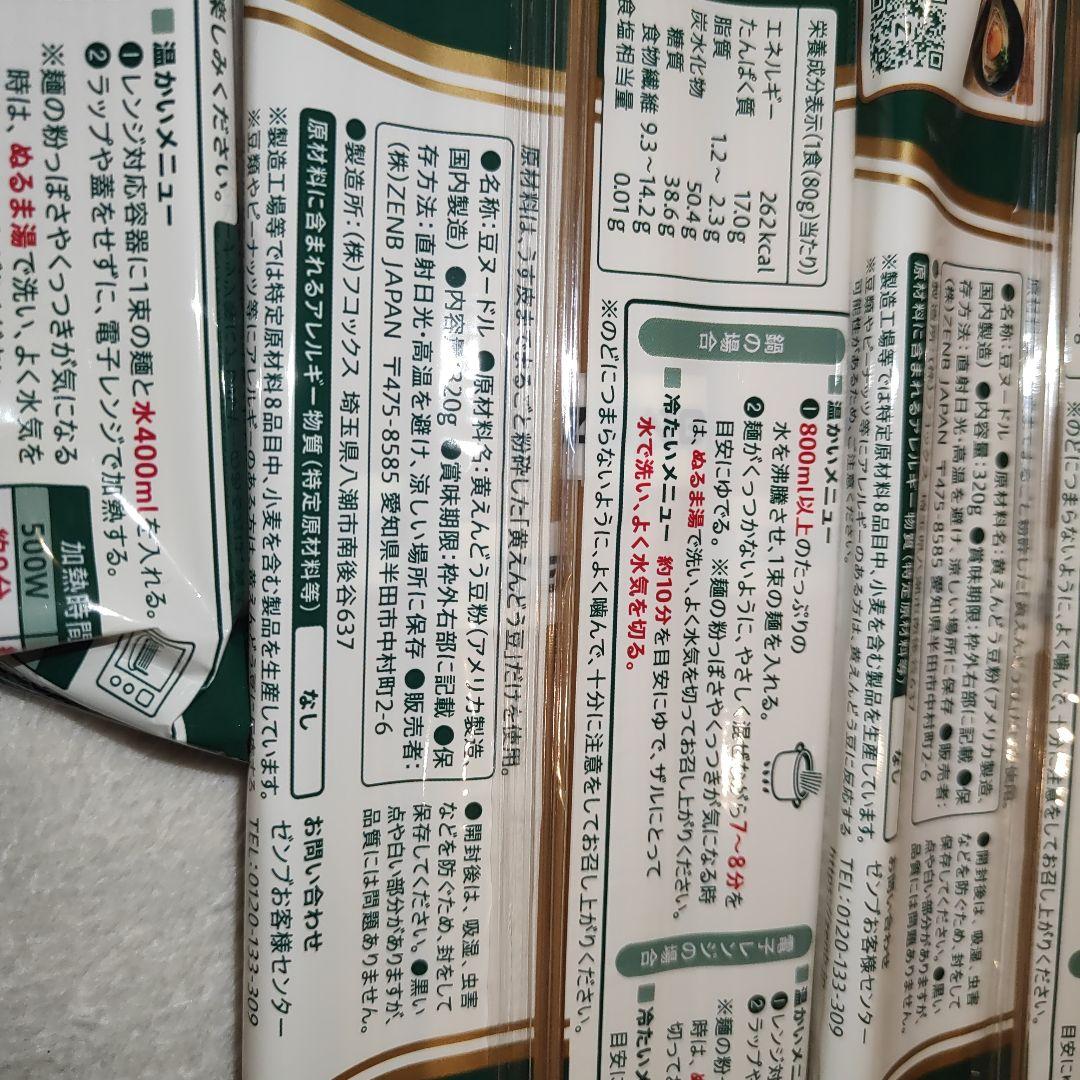 栄養成分表示(1食(80g)当たり)
エネルギー 262kcal
たんぱく質 17.0g
脂質 1.2～ 2.3g
炭水化物 50.4g
糖質 38.6g
食物繊維 9.3～14.2g
食塩相当量 0.01g
鍋の場合
温かいメニュー
❶800ml以上のたっぷりの
水を沸騰させ、1束の麺を入れる。
❷麺がくっつかないように、やさしく混ぜながら7～8分を
目安にゆでる。※麺の粉っぽさやくっつきが気になる時
は、ぬるま湯で洗い、よく水気を切ってお召し上がりください。
冷たいメニュー 約10分を目安にゆで、ザルにとって
水で洗い、よく水気を切る。
※のどにつまらないように、よく噛んで、十分に注意をしてお召し上がりください。
電子レンジの場合
温かいメニ
❶レンジ対
❷ラップや
※麺の粉っ
時は、ぬる
切ってお
冷たいメ
目安に
原材料は、うす皮までまるごと粉砕した「黄えんどう豆」だけを使用。
●名称:豆ヌードル ●原材料名:黄えんどう豆粉(アメリカ製造、
国内製造) ●内容量:320g ●賞味期限:枠外右部に記載 ●保
存方法:直射日光・高温を避け、涼しい場所に保存 ●販売者:
(株)ZENB JAPAN 〒475-8585 愛知県半田市中村町2-6
●製造所:(株)フコックス 埼玉県八潮市南後谷637
原材料に含まれるアレルギー物質(特定原材料等) なし
※製造工場等では特定原材料8品目中、小麦を含む製品を生産しています。
●開封後は、吸湿、虫害
などを防ぐため、封をして
保存してください。●黒い
点や白い部分がありますが、
品質には問題ありません。
お問い合わせ
ゼンブお客様センター
TEL:0120-133-309
楽しみください。
温かいメニュー
❶レンジ対応容器に1束の麺と水400mlを入れる。
❷ラップや蓋をせずに、電子レンジで加熱する。
※麺の粉っぽさやくっつきが気になる
時は、ぬるま湯で洗い、よく水気を
加熱時間
500W
●名称:豆ヌードル ●原材料名:黄えんどう豆粉(アメリカ製造、
国内製造) ●内容量:320g ●賞味期限:枠外右部に記載 ●保
存方法:直射日光・高温を避け、涼しい場所に保存 ●販売者:
(株)ZENB JAPAN 〒475-8585 愛知県半田市中村町2-6
原材料に含まれるアレルギー物質(特定原材料等) なし
※製造工場等では特定原材料8品目中、小麦を含む製品を生産しています。
※豆類やピーナッツ等にアレルギーのある方は、黄えんどう豆に反応する
可能性があるため、ご注意ください。
●開封後は、吸湿、虫害
などを防ぐため、封をして
保存してください。●黒い
点や白い部分がありますが、
品質には問題ありません。
ゼンブお客様センター
TEL:0120-133-309
※のどにつまらないように、よく噛んで、十分に注意をしてお召し上がりください。